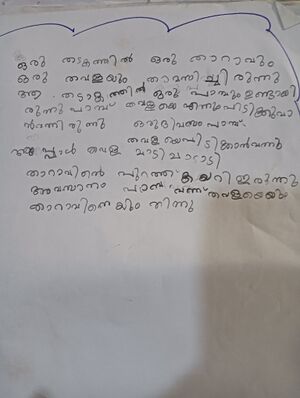 ഒരു തടകത്തിൽ ഒരു താറാവും
ഒരു തവളയും താമസിച്ചിരുന്നു
ആ തടാകത്തിൽ ഒരു പാമ്പും ഉണ്ടായി
രുന്നു പാമ്പ് തവളയെ എന്നും പിടിക്കുവാ
ൻവന്നിരുന്നു ഒരുദിവസം പാമ്പ്
തവളയെപിടിക്കാൻവന്നു
അപ്പോൾ തവള ചാടി ചാടി
താറാവിന്റെ പുറത്ത് കയറി ഇരുന്നു
അവസാനം പാമ്പ് വന്ന് തവളയെയും
താറാവിനെയും തിന്നു